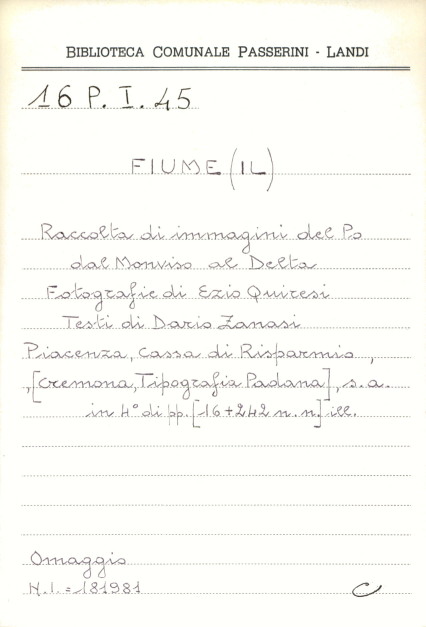 BIBLIOTECA COMUNALE PASSERINI - LANDI
16 P. I. 45
FIUME (IL)
Raccolta di immagini del Po
dal Monviso al Delta
Fotografie di Ezio Quiresi
Testi di Dario Zanasi
Piacenza, Cassa di Risparmio ,
,[Cremona, Tipografia Padana], s.a.
in 4° di pp. [16+242 n. n.] ill.
Omaggio
N.I. = 181981
C